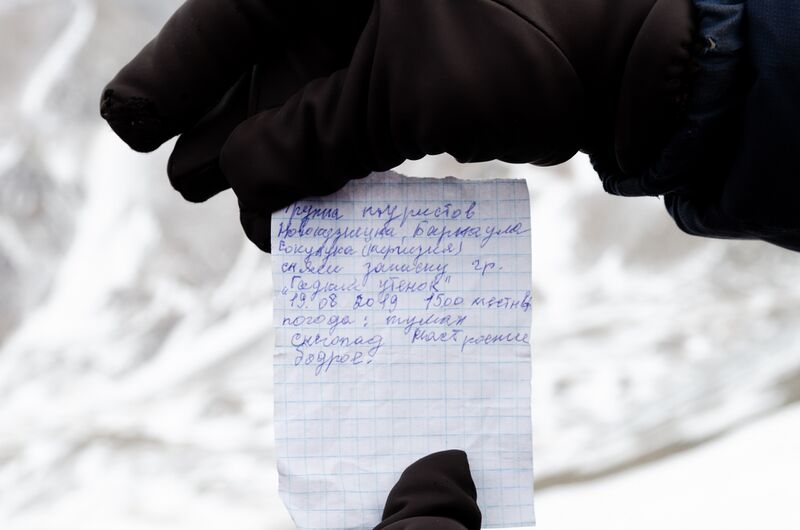 Группа туристов
Новокузнецка, Барнаула
(Киргизия)
сняли записку гр.
„Гадкий утенок"
19.08 2019 1500 местн
погода: туман
снегопад настроение
бодрое.